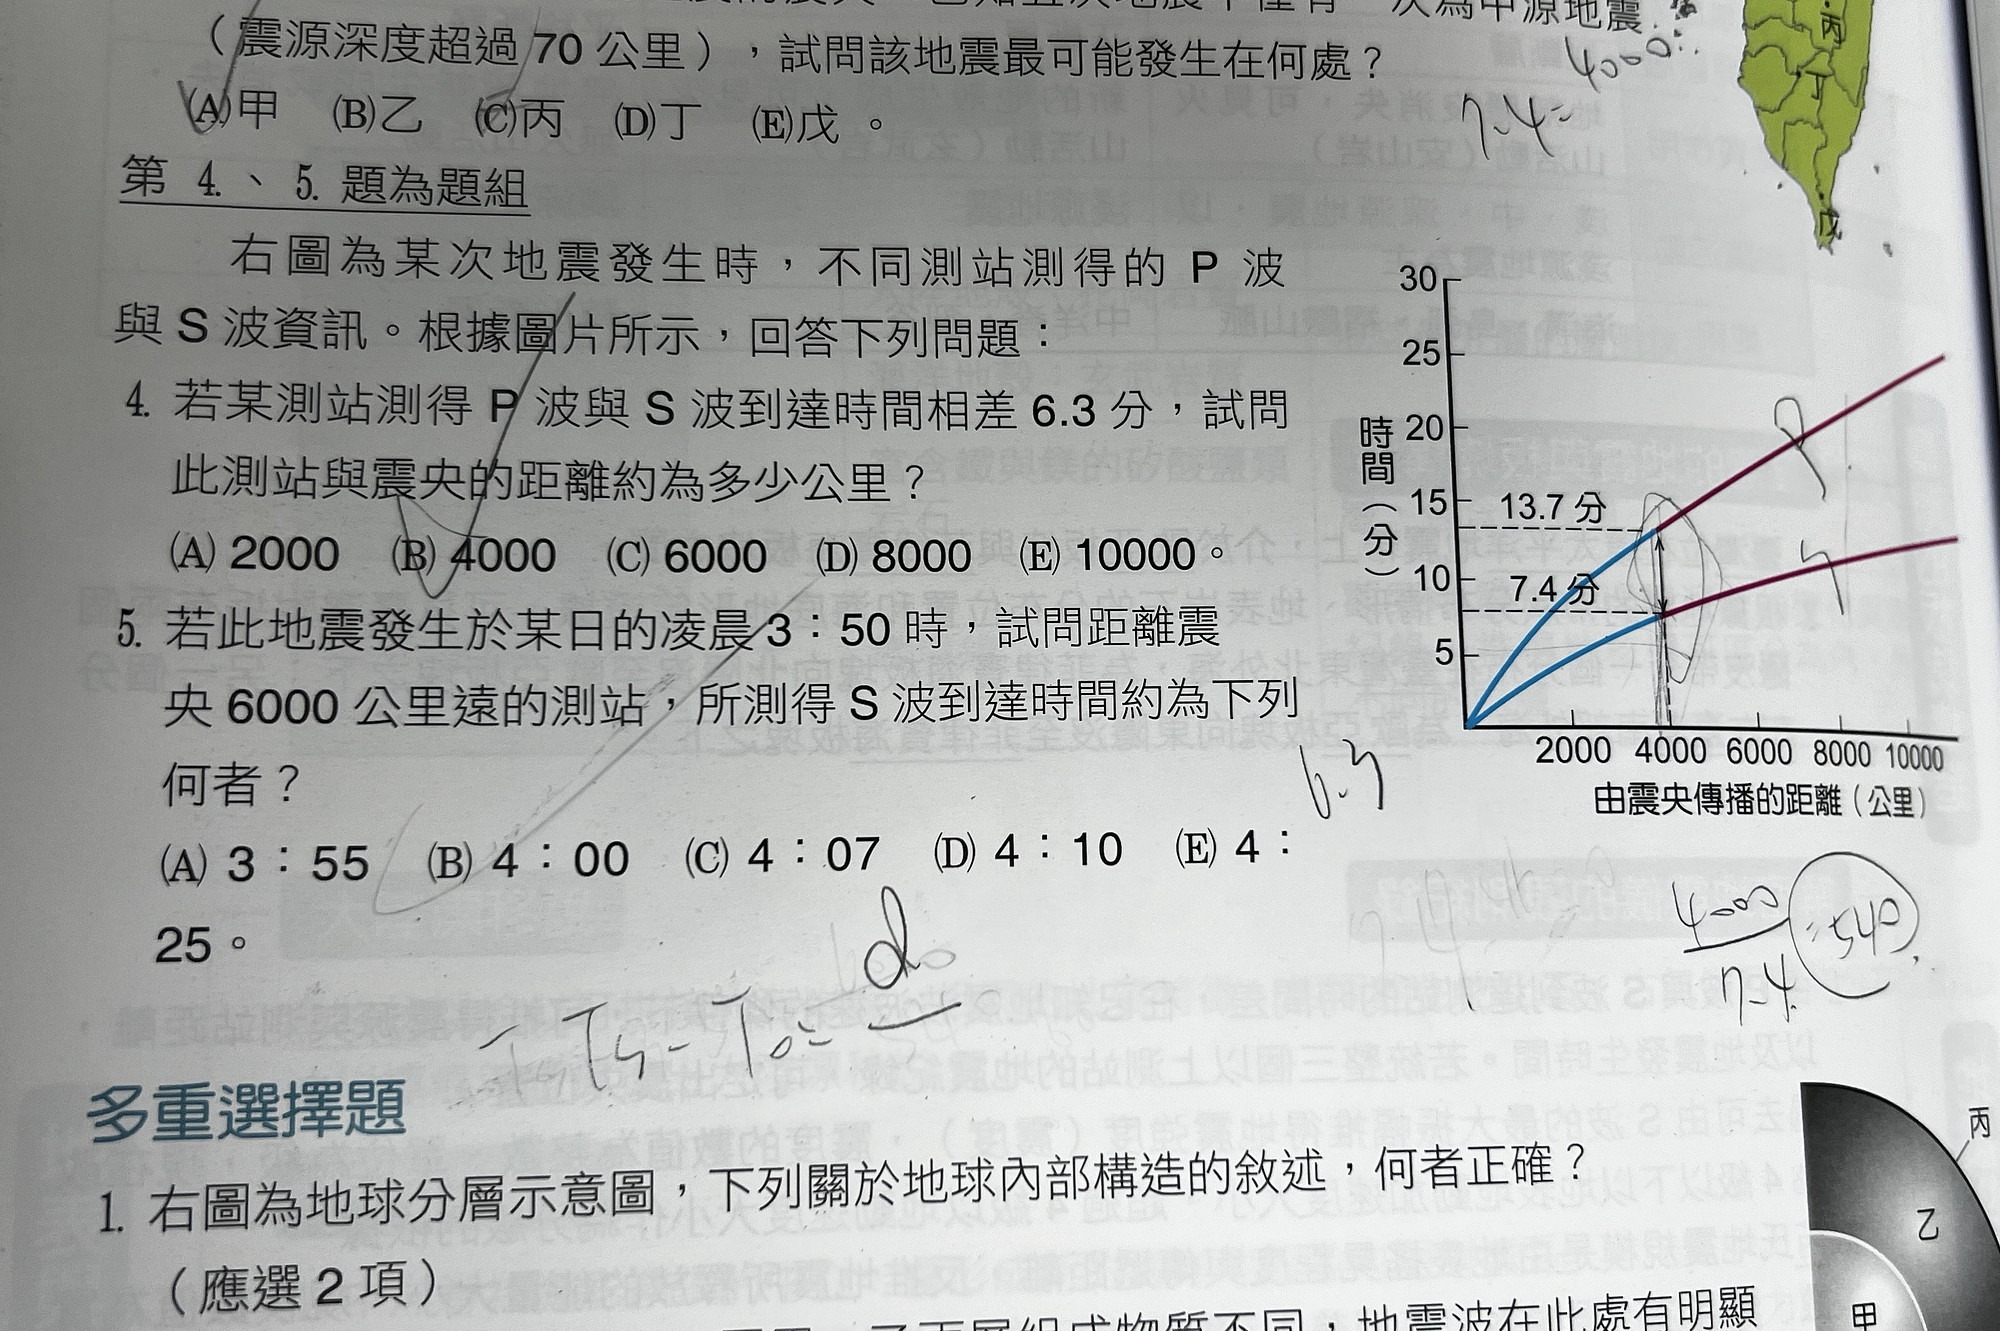 次為中源地震
（震源深度超過 70 公里），試問該地震最可能發生在何處？
(A)甲 (B)乙 (C)丙 (D)丁 (E)戊。
丙
丁
戊
4000
7.4=
第 4.、5. 題為題組
右圖為某次地震發生時，不同測站測得的 P 波
與 S 波資訊。根據圖片所示，回答下列問題：
4. 若某測站測得 P 波與 S 波到達時間相差 6.3 分，試問
此測站與震央的距離約為多少公里？
(A) 2000 (B) 4000 (C) 6000 (D) 8000 (E) 10000。
5. 若此地震發生於某日的凌晨 3：50 時，試問距離震
央 6000 公里遠的測站，所測得 S 波到達時間約為下列
何者？
(A) 3：55 (B) 4：00 (C) 4：07 (D) 4：10 (E) 4：
25。
30
25
20
15
10
5
時間（分）
13.7 分
7.4 分
P
S
2000 4000 6000 8000 10000
由震央傳播的距離（公里）
6.3
4000
7.4
=540
d
Ts-To=
多重選擇題
1. 右圖為地球分層示意圖，下列關於地球內部構造的敘述，何者正確？
（應選 2 項）
丙
乙
甲
地震波在此處有明顯